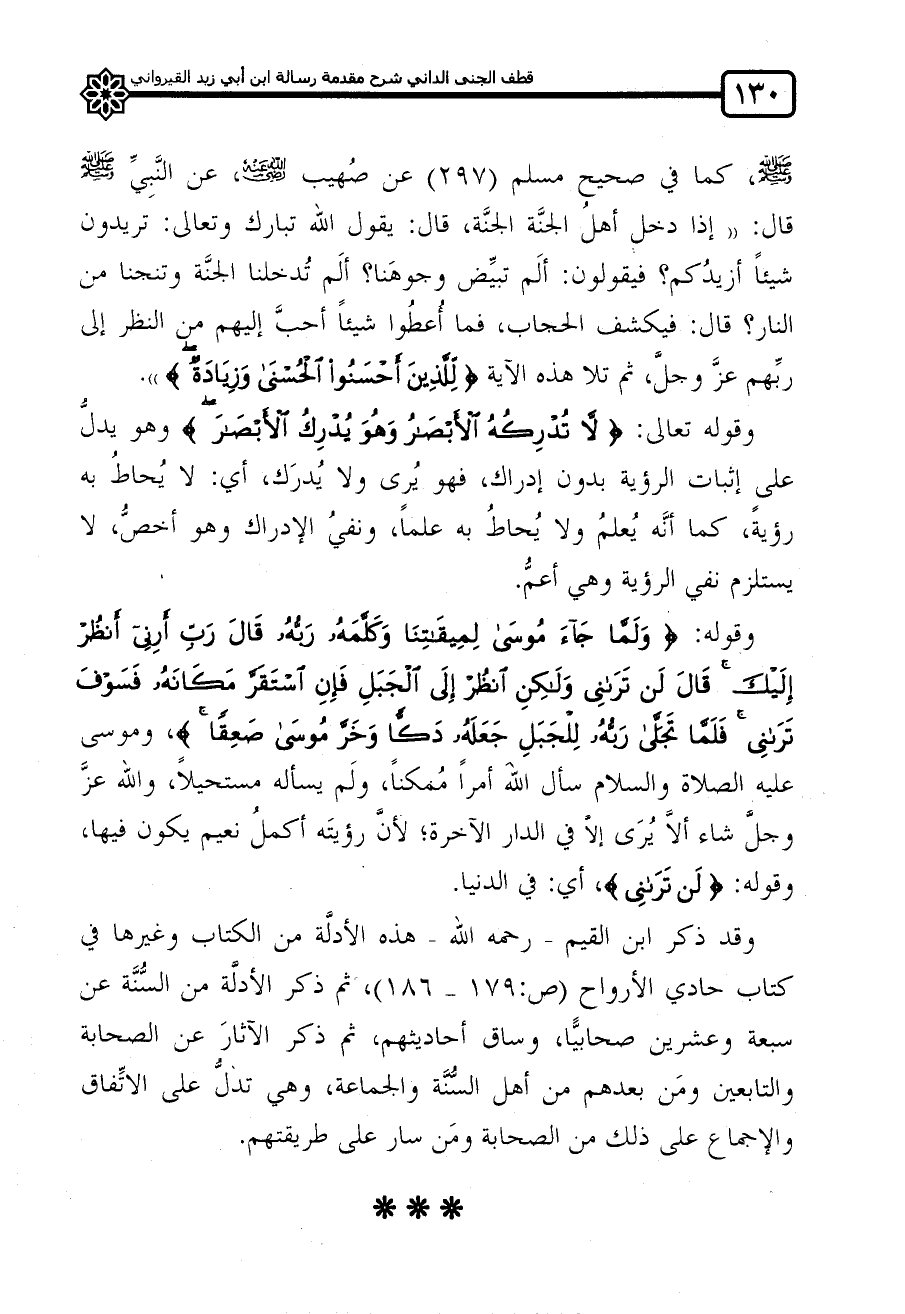 قطف الجنى الداني شرح مقدمة رسالة ابن أبي زيد القيرواني
١٣٠
ﷺ، كما في صحيح مسلم (٢٩٧) عن صُهيب رضي الله عنه، عن النَّبِيِّ ﷺ
قال: (( إذا دخل أهلُ الجنَّة الجنَّة، قال: يقول الله تبارك وتعالى: تريدون
شيئاً أزيدُكم؟ فيقولون: ألَم تبيِّض وجوهَنا؟ ألَم تُدخلنا الجنَّة وتنجنا من
النار؟ قال: فيكشف الحجاب، فما أُعطُوا شيئاً أحبَّ إليهم من النظر إلى
ربِّهم عزَّ وجلَّ، ثم تلا هذه الآية ﴿ لِّلَّذِينَ أَحْسَنُواْ ٱلْحُسْنَىٰ وَزِيَادَةٌ ۖ ﴾ )).
وقوله تعالى: ﴿ لَّا تُدْرِكُهُ ٱلْأَبْصَـٰرُ وَهُوَ يُدْرِكُ ٱلْأَبْصَـٰرَ ۖ ﴾ وهو يدلُّ
على إثبات الرؤية بدون إدراك، فهو يُرى ولا يُدرَك، أي: لا يُحاطُ به
رؤيةً، كما أنَّه يُعلمُ ولا يُحاطُ به علماً، ونفيُ الإدراك وهو أخصُّ، لا
يستلزم نفي الرؤية وهي أعمُّ.
وقوله: ﴿ وَلَمَّا جَآءَ مُوسَىٰ لِمِيقَـٰتِنَا وَكَلَّمَهُۥ رَبُّهُۥ قَالَ رَبِّ أَرِنِىٓ أَنظُرْ
إِلَيْكَ ۚ قَالَ لَن تَرَىٰنِى وَلَـٰكِنِ ٱنظُرْ إِلَى ٱلْجَبَلِ فَإِنِ ٱسْتَقَرَّ مَكَانَهُۥ فَسَوْفَ
تَرَىٰنِى ۚ فَلَمَّا تَجَلَّىٰ رَبُّهُۥ لِلْجَبَلِ جَعَلَهُۥ دَكًّا وَخَرَّ مُوسَىٰ صَعِقًا ۚ ﴾، وموسى
عليه الصلاة والسلام سأل اللهَ أمراً مُمكناً، ولَم يسأله مستحيلاً، والله عزَّ
وجلَّ شاء ألاَّ يُرَى إلاَّ في الدار الآخرة؛ لأنَّ رؤيتَه أكملُ نعيم يكون فيها،
وقوله: ﴿ لَن تَرَىٰنِى ﴾، أي: في الدنيا.
وقد ذكر ابن القيم - رحمه الله - هذه الأدلَّة من الكتاب وغيرها في
كتاب حادي الأرواح (ص:١٧٩ - ١٨٦)، ثم ذكر الأدلَّة من السنَّة عن
سبعة وعشرين صحابيًّا، وساق أحاديثهم، ثم ذكر الآثارَ عن الصحابة
والتابعين ومَن بعدهم من أهل السُّنَّة والجماعة، وهي تدلُّ على الاتِّفاق
والإجماع على ذلك من الصحابة ومَن سار على طريقتهم.